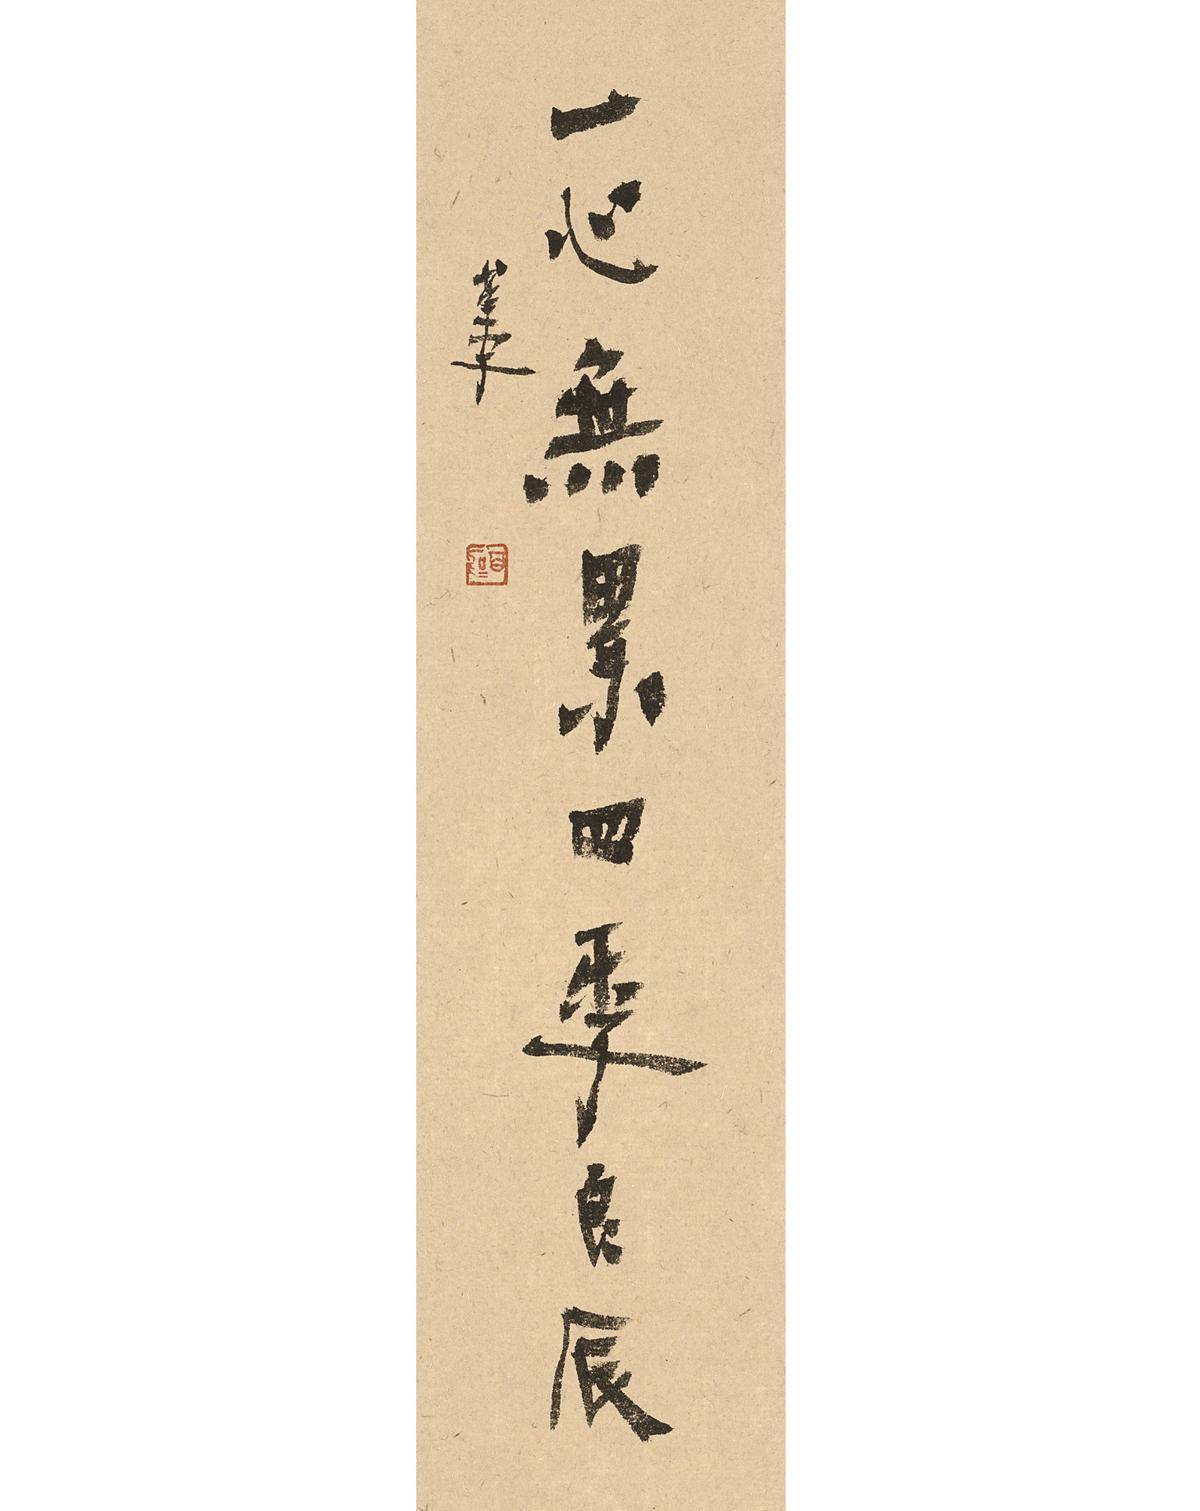 一心無累四季良辰